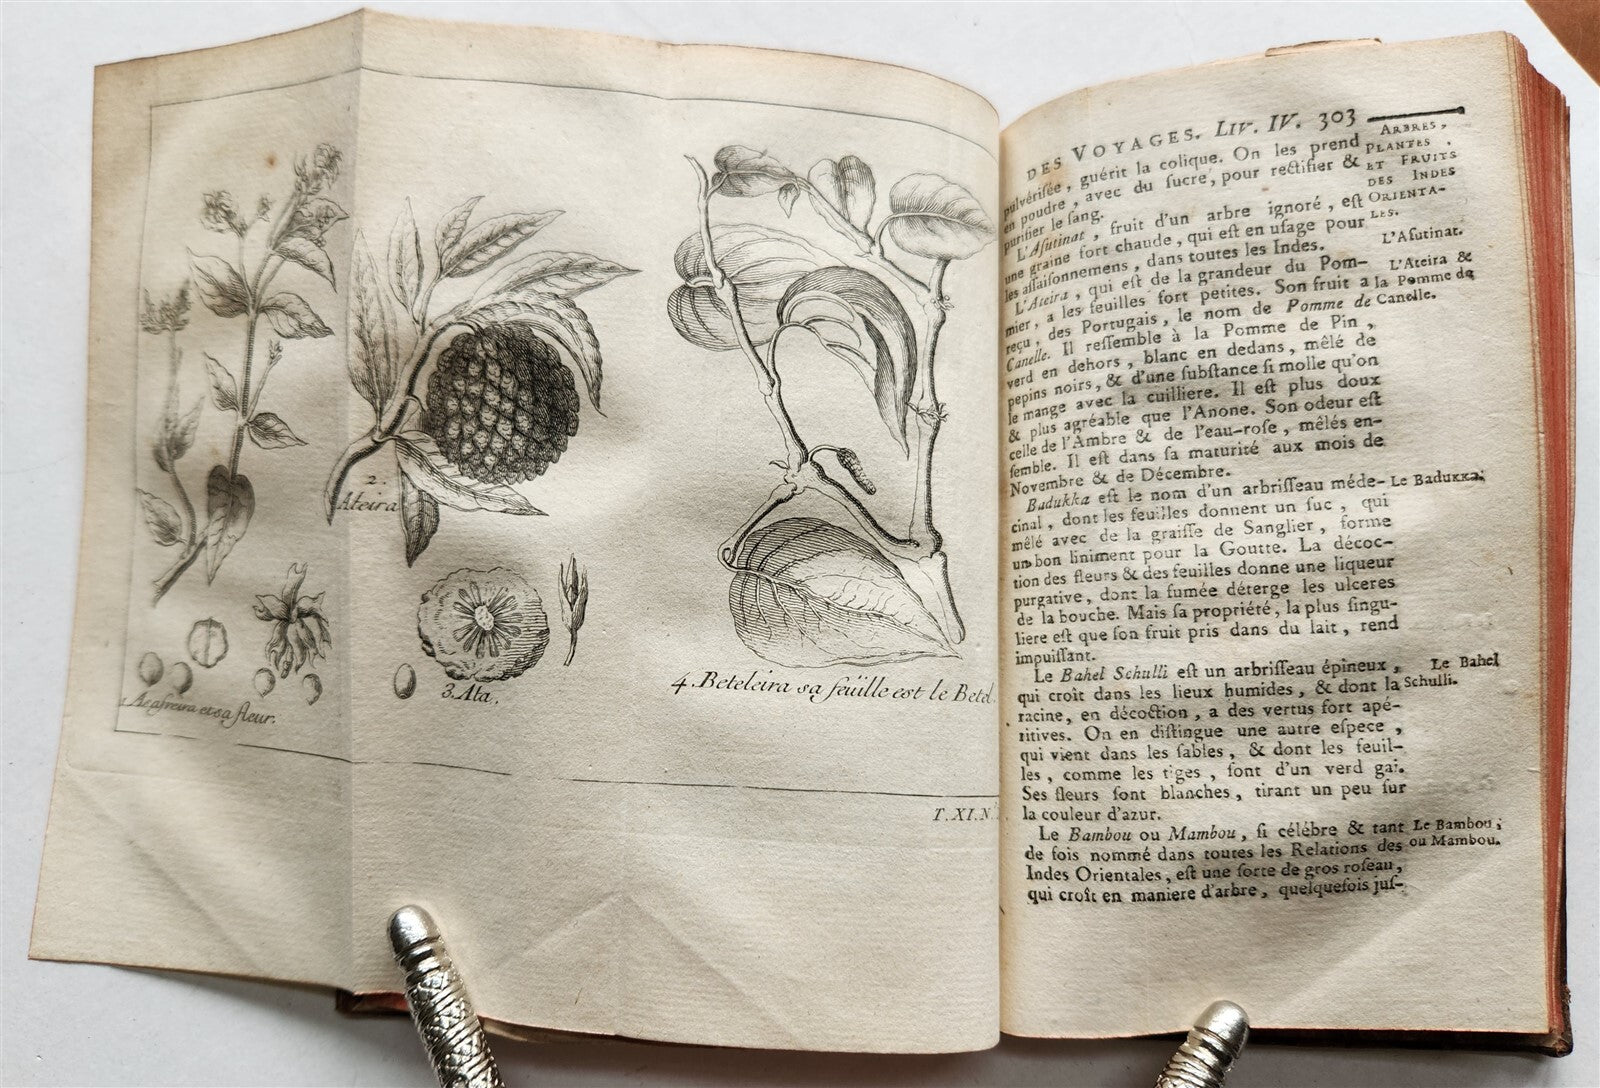 2.
Ateira
3. Ata.
4. Beteleira sa feüille est le Betel.
et sa fleur.
T. XI. N.
DES VOYAGES. LIV. IV. 303
pulvérisée, guérit la colique. On les prend
en poudre, avec du sucre, pour rectifier &
purifier le sang.
L'Asutinat, fruit d'un arbre ignoré, est
une graine fort chaude, qui est en usage pour
les assaisonnemens, dans toutes les Indes.
L'Ateira, qui est de la grandeur du Pom-
mier, a les feuilles fort petites. Son fruit a
reçu, des Portugais, le nom de Pomme de
Canelle. Il ressemble à la Pomme de Pin,
verd en dehors, blanc en dedans, mêlé de
pepins noirs, & d'une substance si molle qu'on
le mange avec la cuilliere. Il est plus doux
& plus agréable que l'Anone. Son odeur est
celle de l'Ambre & de l'eau-rose, mêlés en-
semble. Il est dans sa maturité aux mois de
Novembre & de Décembre.
Badukka est le nom d'un arbrisseau méde-
cinal, dont les feuilles donnent un suc, qui
mêlé avec de la graisse de Sanglier, forme
un bon liniment pour la Goutte. La décoc-
tion des fleurs & des feuilles donne une liqueur
purgative, dont la fumée déterge les ulceres
de la bouche. Mais sa propriété, la plus singu-
liere est que son fruit pris dans du lait, rend
impuissant.
Le Bahel Schulli est un arbrisseau épineux,
qui croît dans les lieux humides, & dont la
racine, en décoction, a des vertus fort apé-
ritives. On en distingue une autre espece,
qui vient dans les sables, & dont les feuil-
les, comme les tiges, sont d'un verd gai.
Ses fleurs sont blanches, tirant un peu sur
la couleur d'azur.
Le Bambou ou Mambou, si célébre & tant
de fois nommé dans toutes les Relations des
Indes Orientales, est une sorte de gros roseau,
qui croît en maniere d'arbre, quelquefois jus-
ARBRES,
PLANTES,
ET FRUITS
DES INDES
ORIENTA-
LES.
L'Asutinat.
L'Ateira &
la Pomme de
Canelle.
Le Badukka;
Le Bahel
Schulli.
Le Bambou;
ou Mambou.